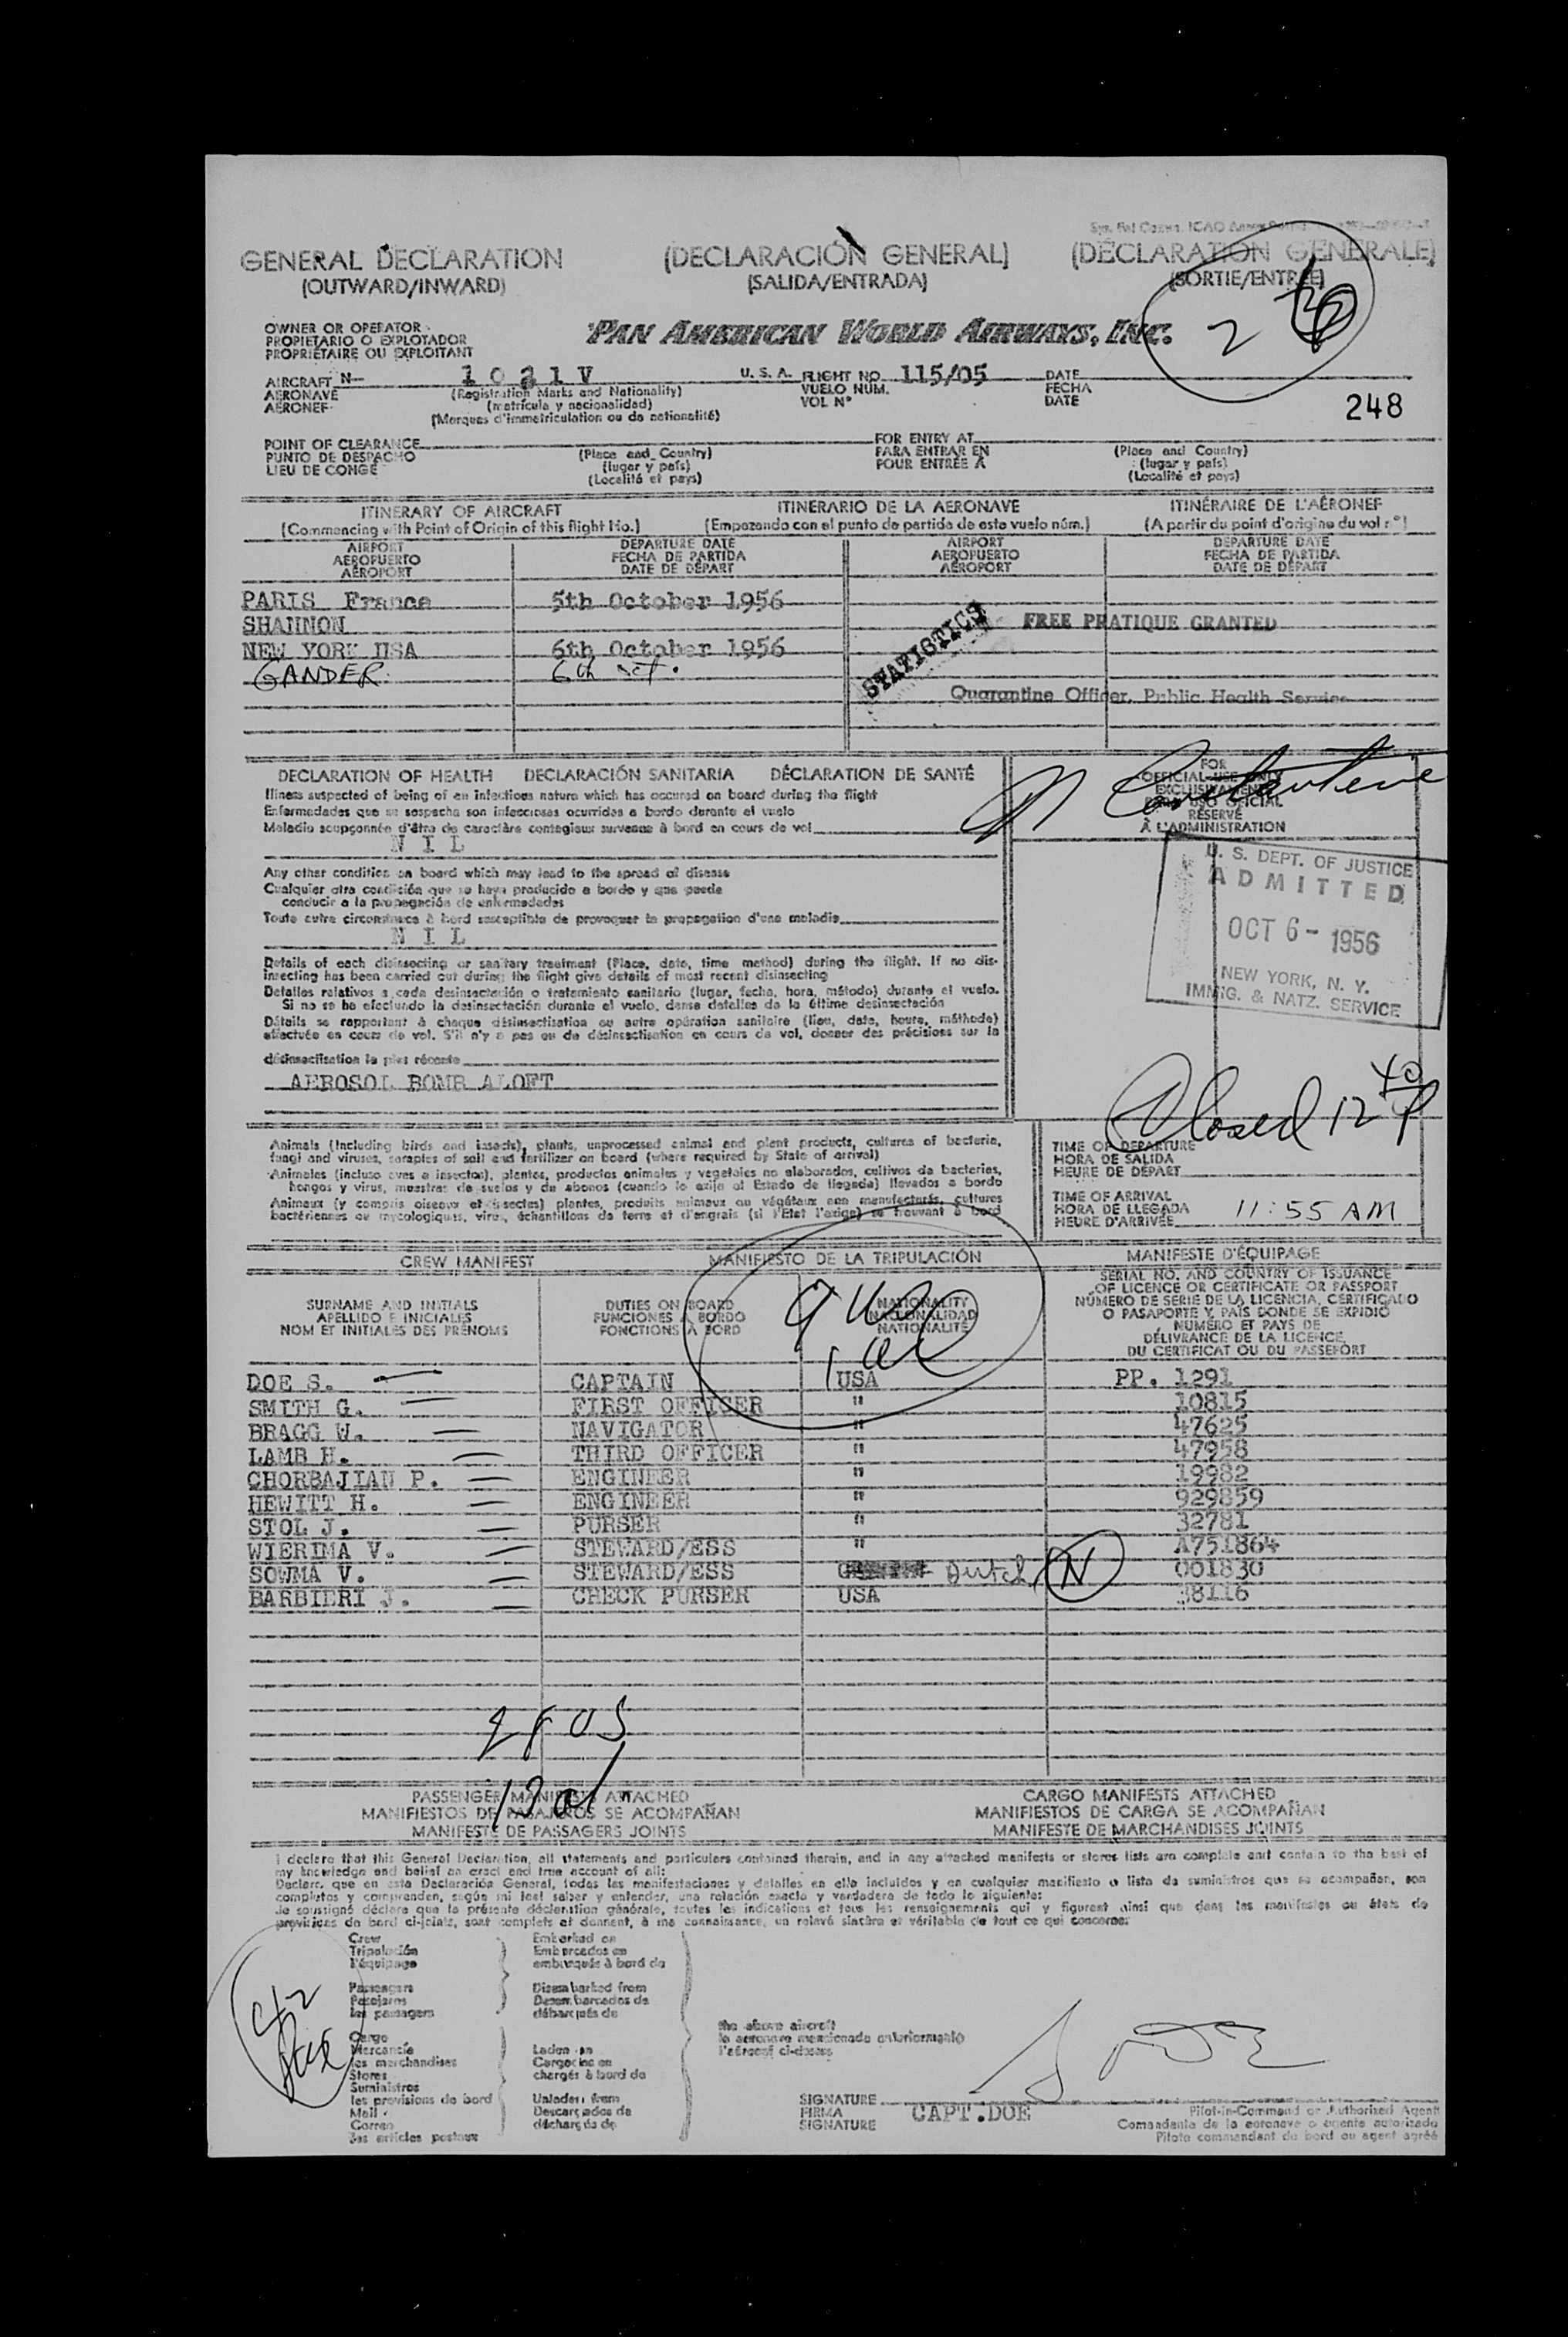 GENERAL DECLARATION (DECLARACIÓN GENERAL) (DÉCLARATION GÉNÉRALE)
(OUTWARD/INWARD) (SALIDA/ENTRADA) (SORTIE/ENTRÉE)
2
OWNER OR OPERATOR
PROPIETARIO O EXPLOTADOR
PROPRIÉTAIRE OU EXPLOITANT
PAN AMERICAN WORLD AIRWAYS, INC.
AIRCRAFT N- 1021V U. S. A. FLIGHT NO. 115/05 DATE
AERONAVE (Registration Marks and Nationality) VUELO NUM. FECHA
AÉRONEF (matrícula y nacionalidad) VOL N° DATE
(Marques d'immatriculation ou de nationalité)
248
POINT OF CLEARANCE FOR ENTRY AT
PUNTO DE DESPACHO (Place and Country) PARA ENTRAR EN (Place and Country)
LIEU DE CONGÉ (lugar y país) POUR ENTRÉE À (lugar y país)
(Localité et pays) (Localité et pays)
ITINERARY OF AIRCRAFT ITINERARIO DE LA AERONAVE ITINÉRAIRE DE L'AÉRONEF
(Commencing with Point of Origin of this flight No.) (Empezando con el punto de partida de este vuelo núm.) (A partir du point d'origine du vol n°)
AIRPORT DEPARTURE DATE AIRPORT DEPARTURE DATE
AEROPUERTO FECHA DE PARTIDA AEROPUERTO FECHA DE PARTIDA
AÉROPORT DATE DE DÉPART AÉROPORT DATE DE DÉPART
PARIS France 5th October 1956
SHANNON FREE PRATIQUE GRANTED
NEW YORK USA 6th October 1956
STATISTICS
GANDER 6th Oct.
Quarantine Officer, Public Health Service
DECLARATION OF HEALTH DECLARACIÓN SANITARIA DÉCLARATION DE SANTÉ
Illness suspected of being of an infectious nature which has occured on board during the flight
Enfermedades que se sospecha son infecciosas ocurridas a bordo durante el vuelo
Maladie soupçonnée d'être de caractère contagieux survenue à bord en cours de vol
NIL
FOR
OFFICIAL USE ONLY
EXCLUSIVAMENTE
PARA USO OFICIAL
RÉSERVÉ
À L'ADMINISTRATION
Any other condition on board which may lead to the spread of disease
Cualquier otra condición que se haya producido a bordo y que puede
conducir a la propagación de enfermedades
Toute autre circonstance à bord susceptible de provoquer la propagation d'une maladie
NIL
U. S. DEPT. OF JUSTICE
ADMITTED
OCT 6 - 1956
NEW YORK, N. Y.
IMMIG. & NATZ. SERVICE
Details of each disinsecting or sanitary treatment (Place, date, time method) during the flight. If no dis-
insecting has been carried out during the flight give details of most recent disinsecting
Detalles relativos a cada desinsectación o tratamiento sanitario (lugar, fecha, hora, método) durante el vuelo.
Si no se ha efectuado la desinsectación durante el vuelo, danse detalles de la última desinsectación
Détails se rapportant à chaque désinsectisation ou autre opération sanitaire (lieu, date, heure, méthode)
effectuée en cours de vol. S'il n'y a pas eu de désinsectisation en cours de vol, donner des précisions sur la
désinsectisation la plus récente
AEROSOL BOMB ALOFT
Closed 12 40 P
Animals (Including birds and insects), plants, unprocessed animal and plant products, cultures of bacteria,
fungi and viruses, samples of soil and fertilizer on board (where required by State of arrival)
Animales (incluso aves e insectos), plantas, productos animales y vegetales no elaborados, cultivos de bacterias,
hongos y virus, muestras de suelos y de abonos (cuando lo exija el Estado de llegada) llevados a bordo
Animaux (y compris oiseaux et insectes) plantes, produits animaux ou végétaux non manufacturés, cultures
bactériennes ou mycologiques, virus, échantillons de terre et d'engrais (si l'État l'exige) se trouvant à bord
TIME OF DEPARTURE
HORA DE SALIDA
HEURE DE DÉPART
TIME OF ARRIVAL
HORA DE LLEGADA
HEURE D'ARRIVÉE 11:55 AM
CREW MANIFEST MANIFIESTO DE LA TRIPULACIÓN MANIFESTE D'ÉQUIPAGE
SURNAME AND INITIALS
APELLIDO E INICIALES
NOM ET INITIALES DES PRÉNOMS
DUTIES ON BOARD
FUNCIONES A BORDO
FONCTIONS À BORD
NATIONALITY
NACIONALIDAD
NATIONALITÉ
SERIAL NO. AND COUNTRY OF ISSUANCE
OF LICENCE OR CERTIFICATE OR PASSPORT
NÚMERO DE SERIE DE LA LICENCIA, CERTIFICADO
O PASAPORTE Y PAÍS DONDE SE EXPIDIÓ
NUMÉRO ET PAYS DE
DÉLIVRANCE DE LA LICENCE
DU CERTIFICAT OU DU PASSEPORT
DOE S. CAPTAIN USA PP. 1291
SMITH G. FIRST OFFICER " 10815
BRAGG W. NAVIGATOR " 47625
LAMB H. THIRD OFFICER " 47958
CHORBAJIAN P. ENGINEER " 19982
HEWITT H. ENGINEER " 929859
STOL J. PURSER " 32781
WIERIMA V. STEWARD/ESS " A751864
SOWMA V. STEWARD/ESS Dutch N 001830
BARBIERI J. CHECK PURSER USA 38116
PASSENGER MANIFESTS ATTACHED CARGO MANIFESTS ATTACHED
MANIFIESTOS DE PASAJEROS SE ACOMPAÑAN MANIFIESTOS DE CARGA SE ACOMPAÑAN
MANIFESTE DE PASSAGERS JOINTS MANIFESTE DE MARCHANDISES JOINTS
I declare that this General Declaration, all statements and particulars contained therein, and in any attached manifests or stores lists are complete and contain to the best of
my knowledge and belief an exact and true account of all:
Declaro que en esta Declaración General, todas las manifestaciones y detalles en ella incluidos y en cualquier manifiesto o lista de suministros que se acompañan, son
completos y comprenden, según mi leal saber y entender, una relación exacta y verdadera de todo lo siguiente:
Je soussigné déclare que la présente déclaration générale, toutes les indications et tous les renseignements qui y figurent ainsi que dans les manifestes ou états de
provisions de bord ci-joints, sont complets et donnent, à ma connaissance, un relevé sincère et véritable de tout ce qui concerne:
Crew Embarked on
Tripulación Embarcados en
l'équipage embarqués à bord de
Passengers Disembarked from
Pasajeros Desembarcados de
les passagers débarqués de
Cargo
Mercancía Laden on
les marchandises Cargocias en
Stores chargés à bord de
Suministros
les provisions de bord Unladen from
Mail Descargados de
Correo déchargés de
les articles postaux
the above aircraft
la aeronave mencionada anteriormente
l'aéronef ci-dessus
S DOE
SIGNATURE
FIRMA CAPT. DOE
SIGNATURE
Pilot-in-Command or Authorised Agent
Comandante de la aeronave o agente autorizado
Pilote commandant du bord ou agent agréé